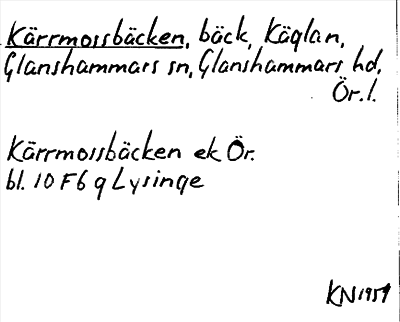 Kärrmossbäcken, bäck, Käglan,
Glanshammars sn, Glanshammars hd,
Ör.l.
Kärrmossbäcken ek Ör.
bl. 10 F 6 g Lysinge
KN 1959